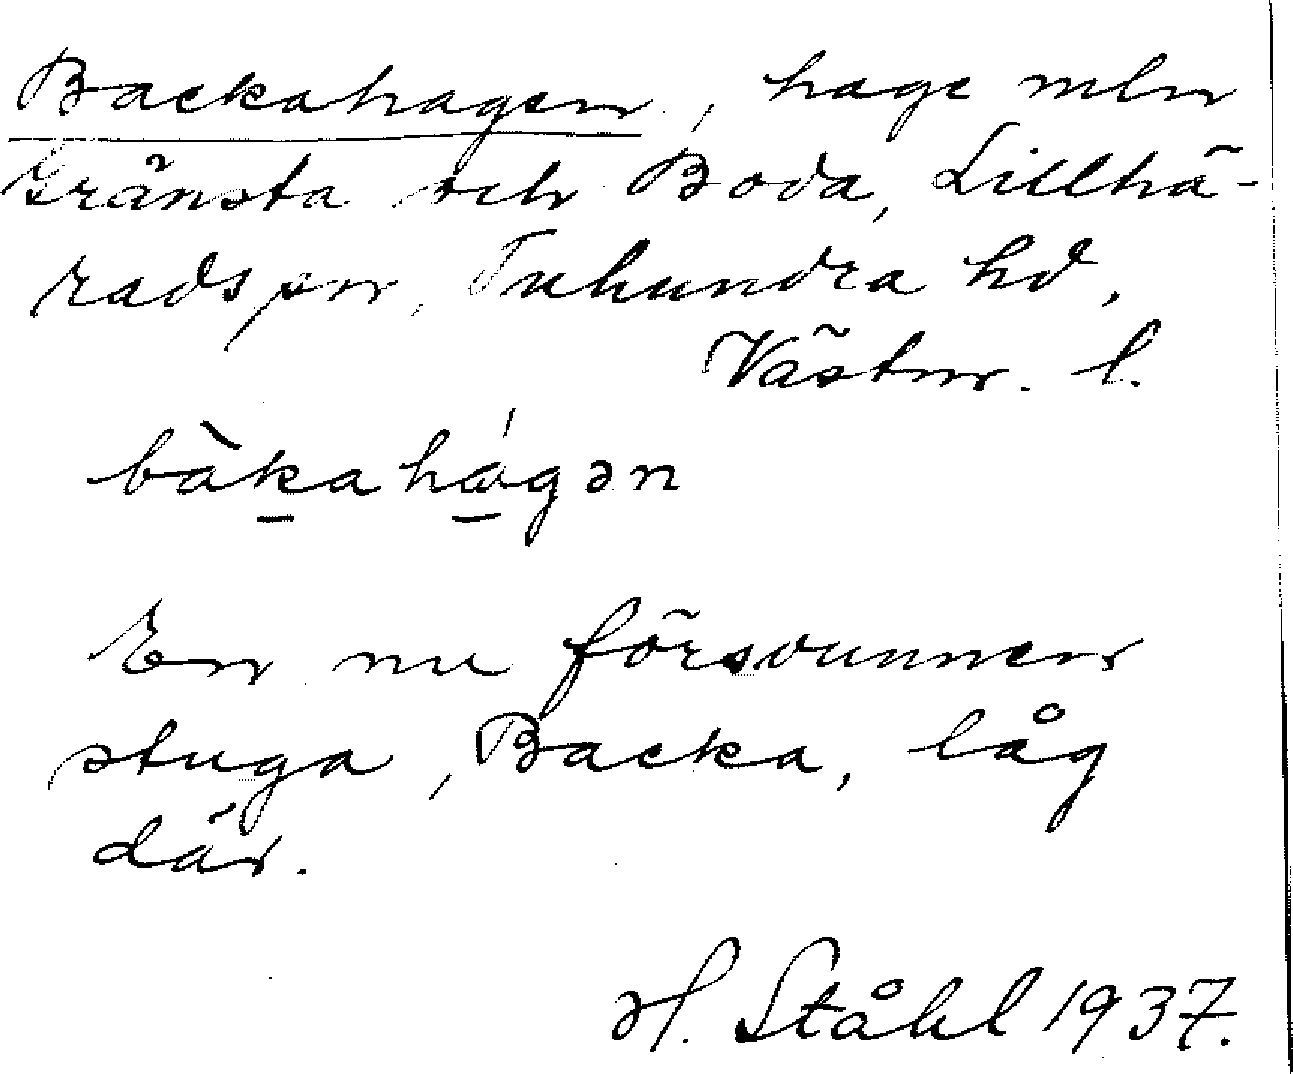 Backahagen, hage mln
Gränsta och Boda, Lillhä-
rads sn, Tuhundra hd,
Västm. l.
bàkahágən
En nu försvunnen
stuga, Backa, låg
där.
H. Ståhl 1937.